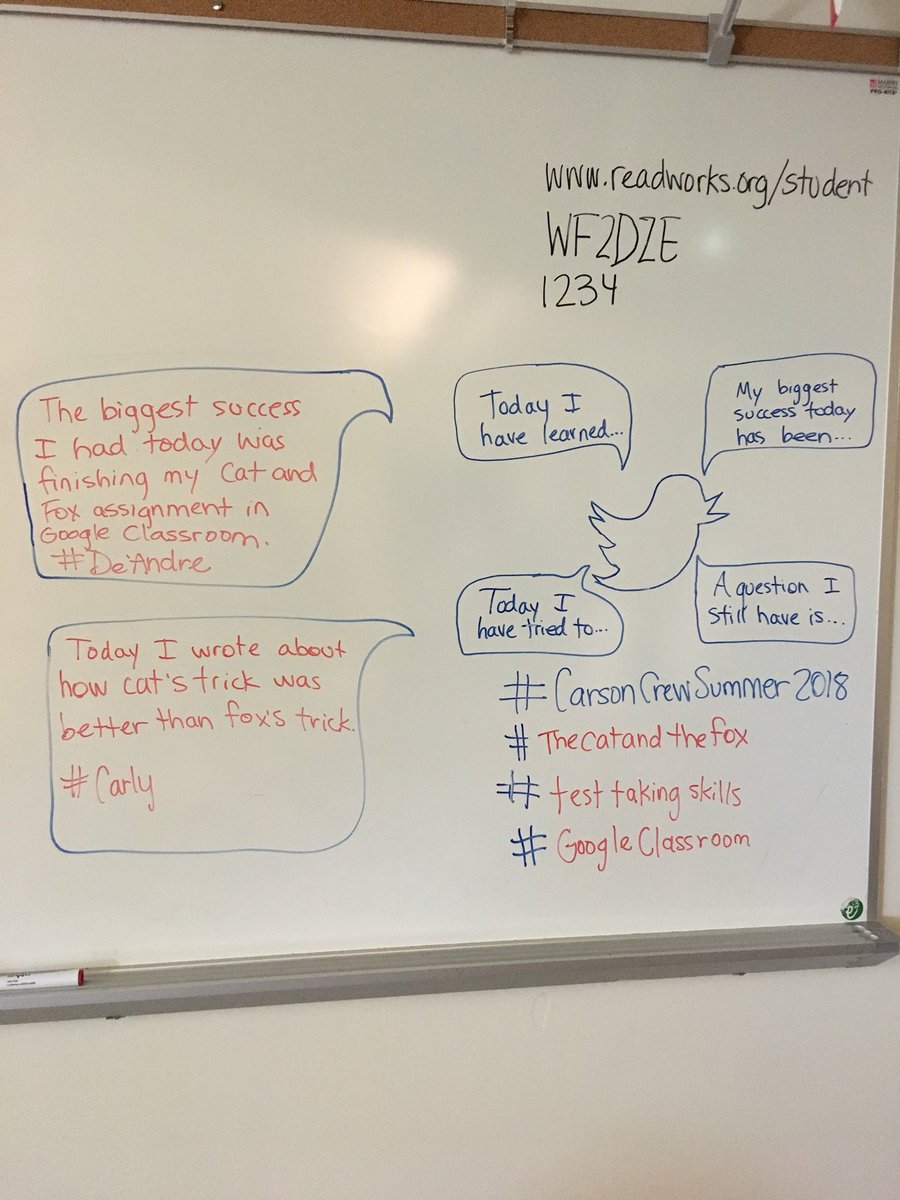 www.readworks.org/student
WF2DZE
1234
The biggest success
I had today was
finishing my Cat and
Fox assignment in
Google Classroom.
#De'Andre
Today I wrote about
how cat's trick was
better than fox's trick.
#Carly
Today I
have learned...
My biggest
success today
has been...
Today I
have tried to...
A question I
still have is...
#CarsonCrewSummer2018
#Thecatandthefox
#test taking skills
#GoogleClassroom